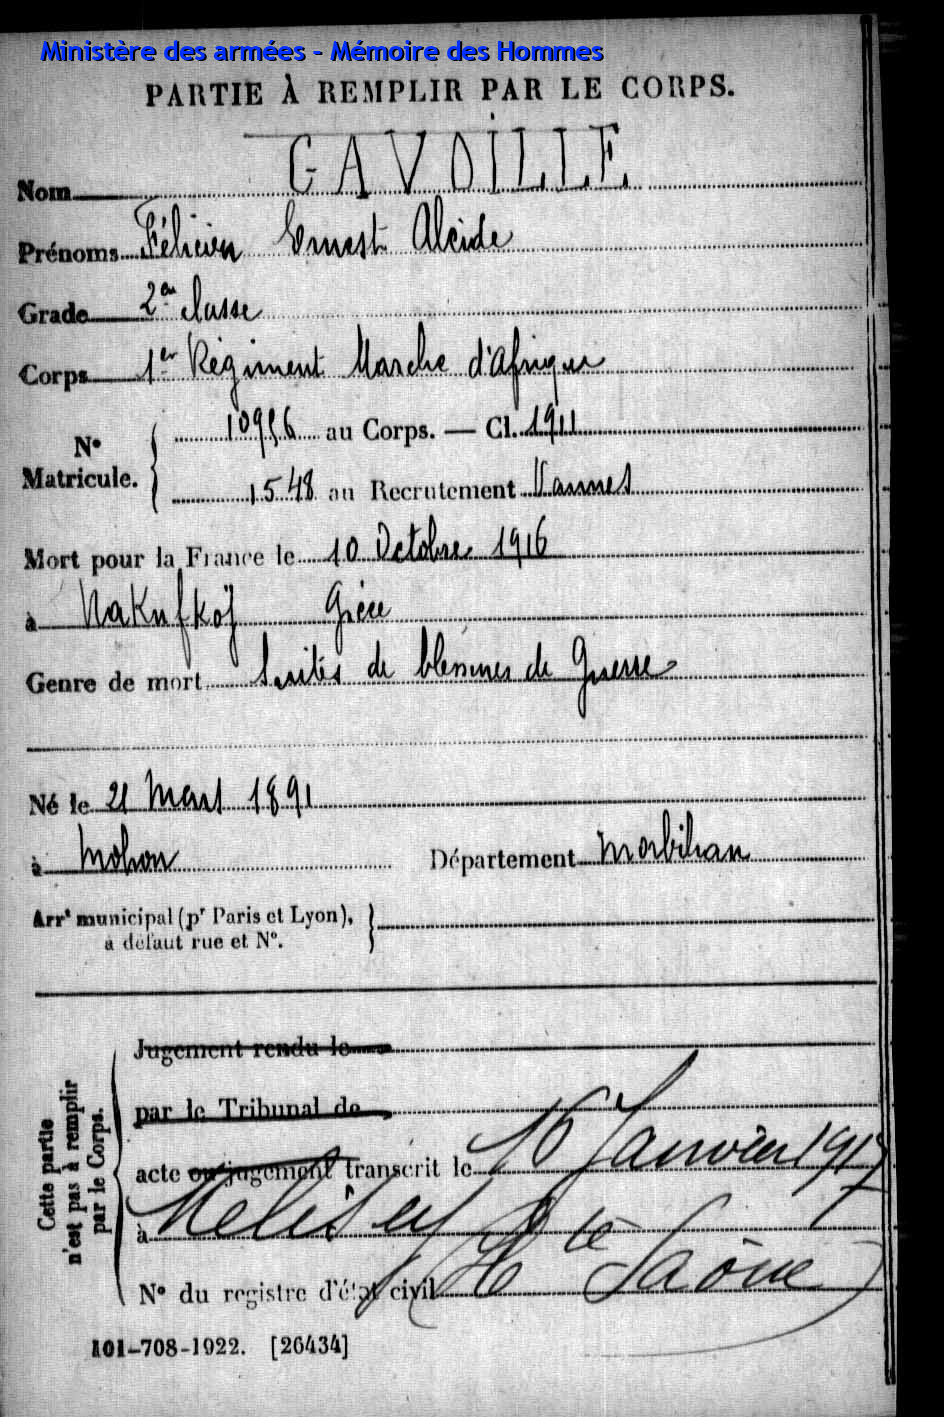 Ministère des armées - Mémoire des Hommes
PARTIE À REMPLIR PAR LE CORPS.
Nom GAVOILLE
Prénoms Félicien Ernest Alcide
Grade 2e classe
Corps 1er Régiment Marche d'Afrique
N° Matricule. 10956 au Corps. — Cl. 1911
1548 au Recrutement Vannes
Mort pour la France le 10 Octobre 1916
à Grèce
Genre de mort Suites de blessures de Guerre
Né le 21 Mars 1891
à Mohon Département Morbihan
Arrt municipal (pr Paris et Lyon),
à défaut rue et N°.
Cette partie n'est pas à remplir par le Corps.
Jugement rendu le
par le Tribunal de
acte ou jugement transcrit le 16 Janvier 1917
à Melisey (Hte Saône)
N° du registre d'état civil
101-708-1922. [26434]